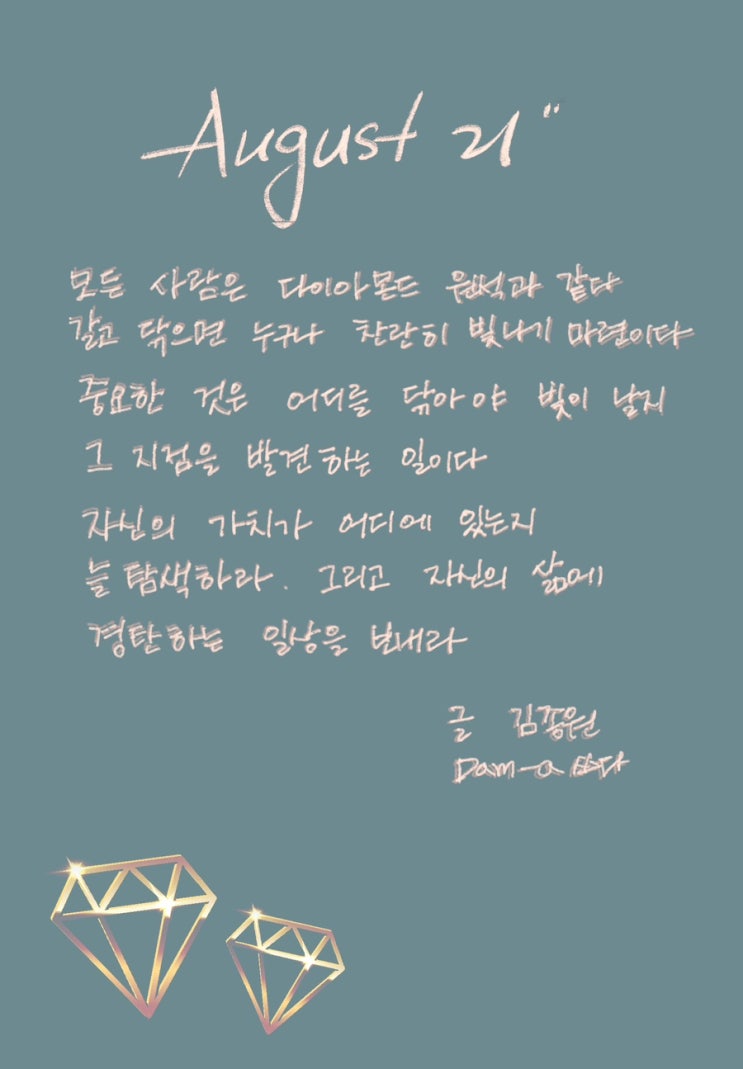 August 21"
모든 사람은 다이아몬드 원석과 같다
갈고 닦으면 누구나 찬란히 빛나기 마련이다
중요한 것은 어디를 닦아야 빛이 날지
그 지점을 발견하는 일이다
자신의 가치가 어디에 있는지
늘 탐색하라. 그리고 자신의 삶에
경탄하는 일상을 보내라
글 김종원
Dam-a 쓰다